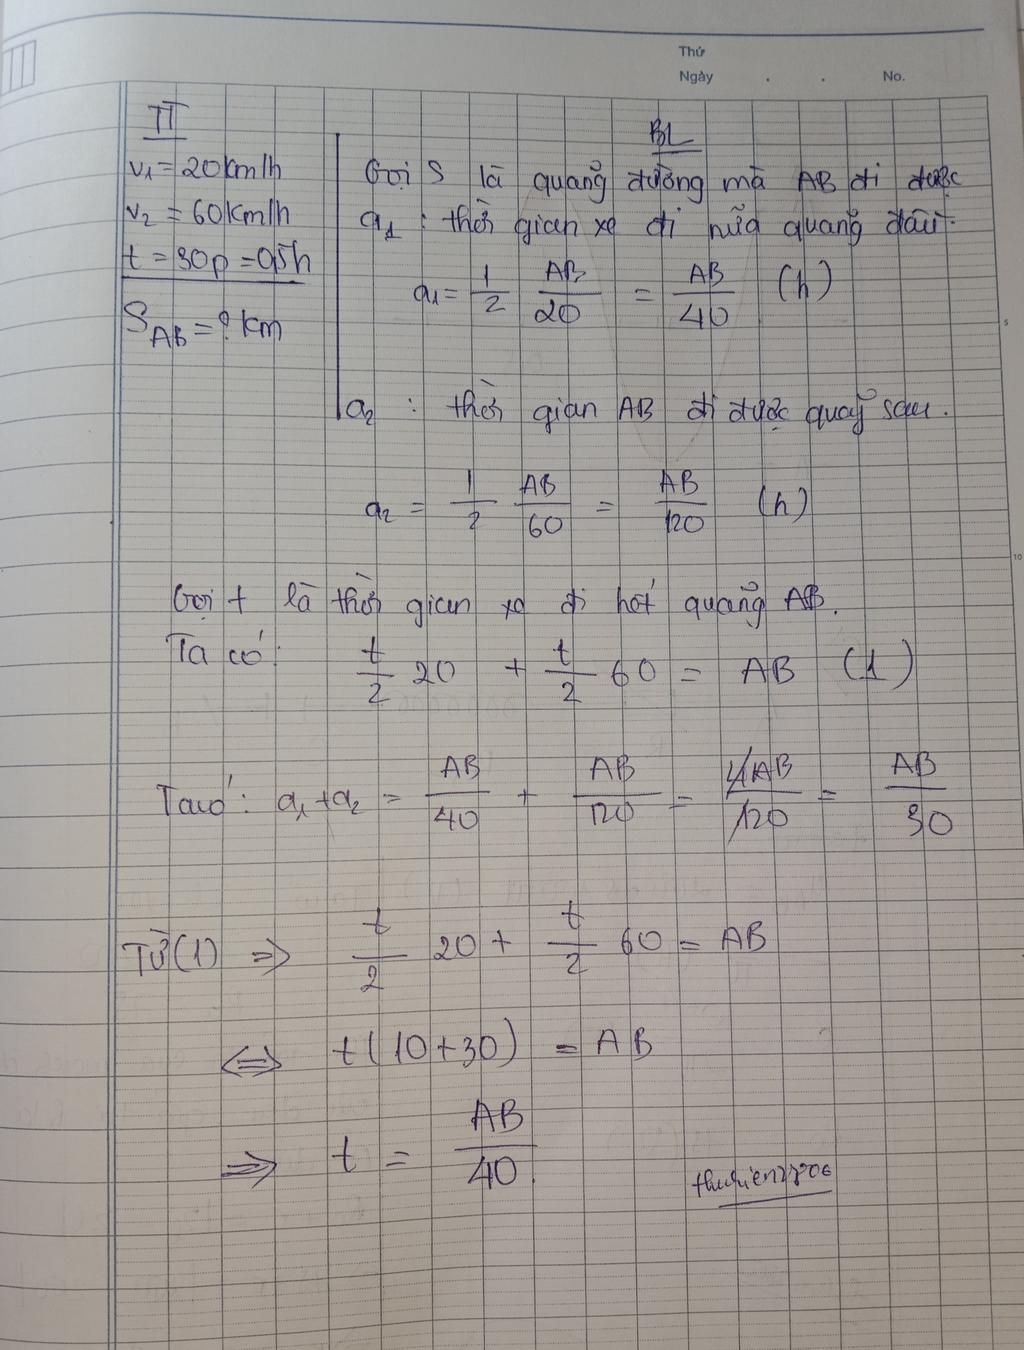 Thứ
Ngày . . No.
TT
v₁ = 20km/h
v₂ = 60km/h
t = 30p = 0,5h
S_AB = ? km
BL
Gọi S là quãng đường mà AB đi được
a₁ : thời gian xe đi nữa quãng đầu
a₁ = 1/2 AB/20 = AB/40 (h)
5
a₂ : thời gian AB đi được quãg sau.
a₂ = 1/2 AB/60 = AB/120 (h)
10
Gọi t là thời gian xe đi hết quãng AB.
Ta có: t/2 20 + t/2 60 = AB (1)
Ta có: a₁ + a₂ = AB/40 + AB/120 = 4AB/120 = AB/30
Từ (1) ⇒ t/2 20 + t/2 60 = AB
⇔ t(10+30) = AB
⇒ t = AB/40.